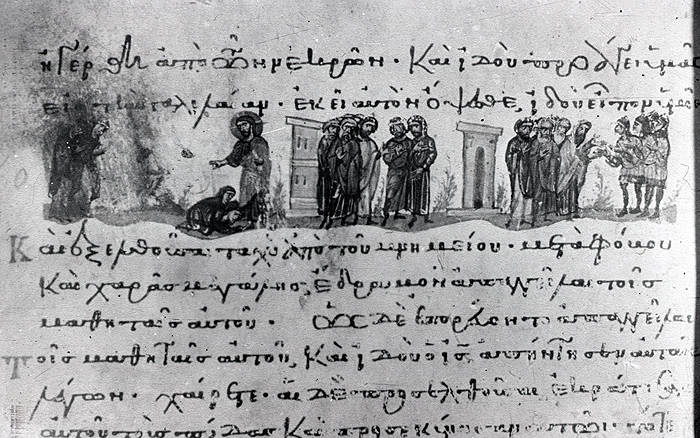 ἠγέρθη ἀπὸ τῶν νεκρῶν· Καὶ ἰδοὺ προάγει ὑμᾶς
εἰς τὴν γαλιλαίαν· ἐκεῖ αὐτὸν ὄψεσθε, ἰδοὺ εἶπον
Καὶ ἐξελθοῦσαι ταχὺ ἀπὸ τοῦ μνημείου· μετὰ φόβου
Καὶ χαρᾶς μεγάλης, ἔδραμον ἀπαγγεῖλαι τοῖς
μαθηταῖς αὐτοῦ· Ὡς δὲ ἐπορεύοντο ἀπαγγεῖλαι
τοῖς μαθηταῖς αὐτοῦ, Καὶ ἰδοὺ ὁ ις ἀπήντησεν αὐταῖς
λέγων· χαίρετε· αἱ δὲ προσελθοῦσαι ἐκράτησαν
αὐτοῦ τοὺς πόδας Καὶ προσεκύνησαν